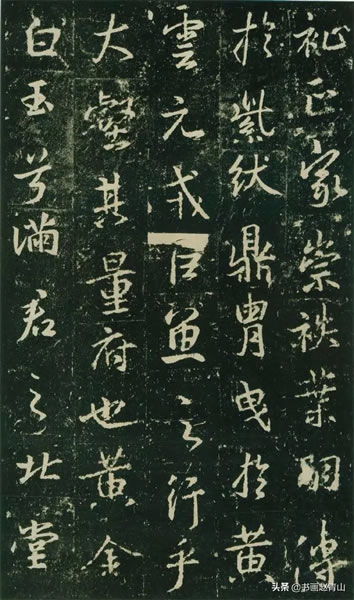 祉正家崇袟葉嗣傳
於紫紱鼎胄曳於黃
雲元戎巨魚之行乎
大壑其量府也黃金
白玉兮滿君之北堂
头条 @书画赵青山